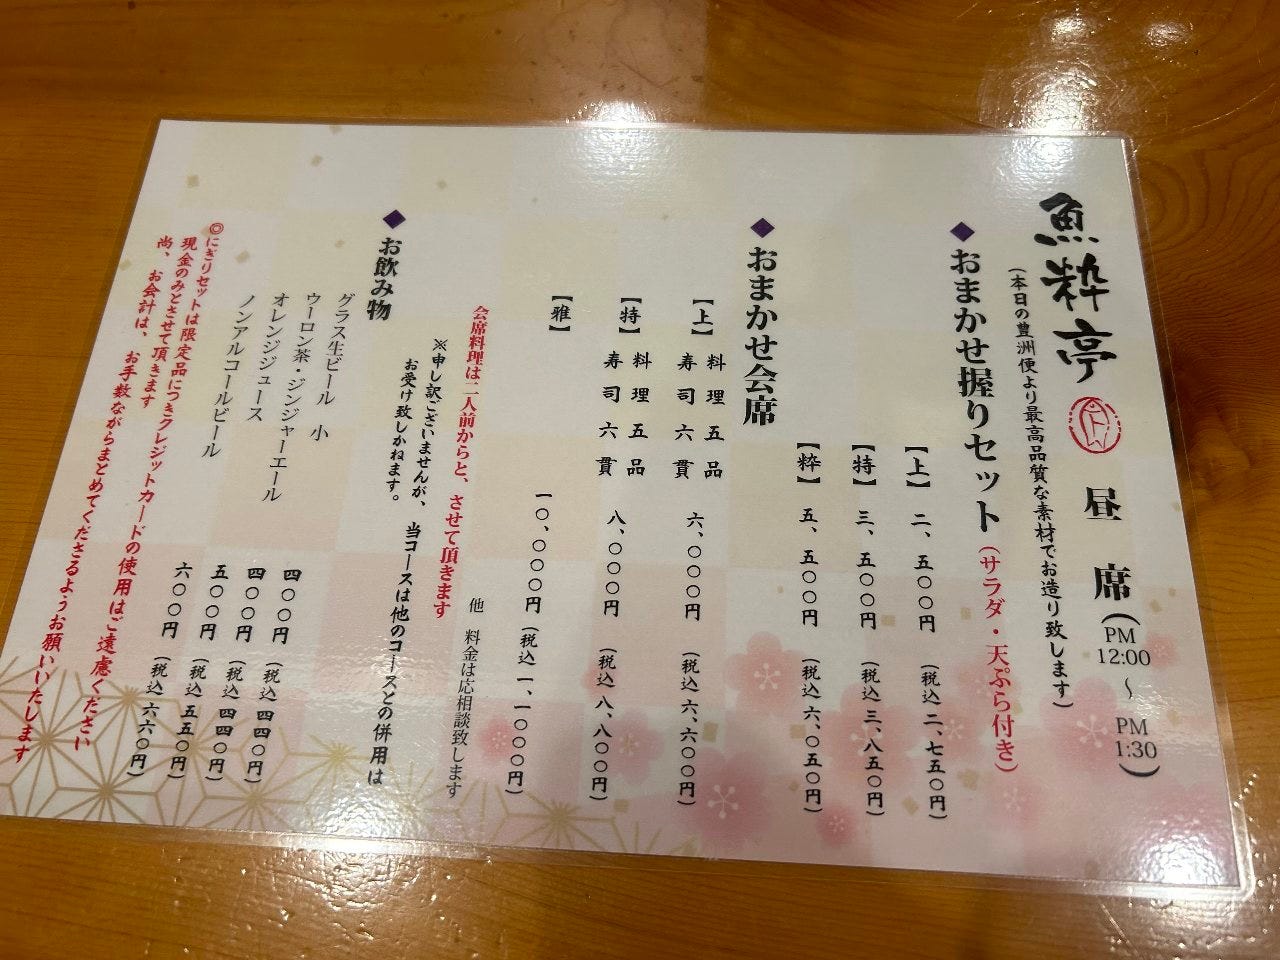 魚粋亭 昼席(PM 12:00 ～ PM 1:30)
(本日の豊洲便より最高品質な素材でお造り致します)
◆おまかせ握りセット(サラダ・天ぷら付き)
【上】 二、五〇〇円 (税込 二、七五〇円)
【特】 三、五〇〇円 (税込 三、八五〇円)
【粋】 五、五〇〇円 (税込 六、〇五〇円)
◆おまかせ会席
【上】 料理五品
寿司六貫 六、〇〇〇円 (税込 六、六〇〇円)
【特】 料理五品
寿司六貫 八、〇〇〇円 (税込 八、八〇〇円)
【雅】 一〇、〇〇〇円 (税込 一一、〇〇〇円)
他 料金は応相談致します
会席料理は二人前からと、させて頂きます
※申し訳ございませんが、当コースは他のコースとの併用は
お受け致しかねます。
◆お飲み物
グラス生ビール 小 四〇〇円 (税込 四四〇円)
ウーロン茶・ジンジャーエール 四〇〇円 (税込 四四〇円)
オレンジジュース 五〇〇円 (税込 五五〇円)
ノンアルコールビール 六〇〇円 (税込 六六〇円)
◎にぎりセットは限定品につきクレジットカードの使用はご遠慮ください
現金のみとさせて頂きます
尚、お会計は、お手数ながらまとめてくださるようお願いいたします